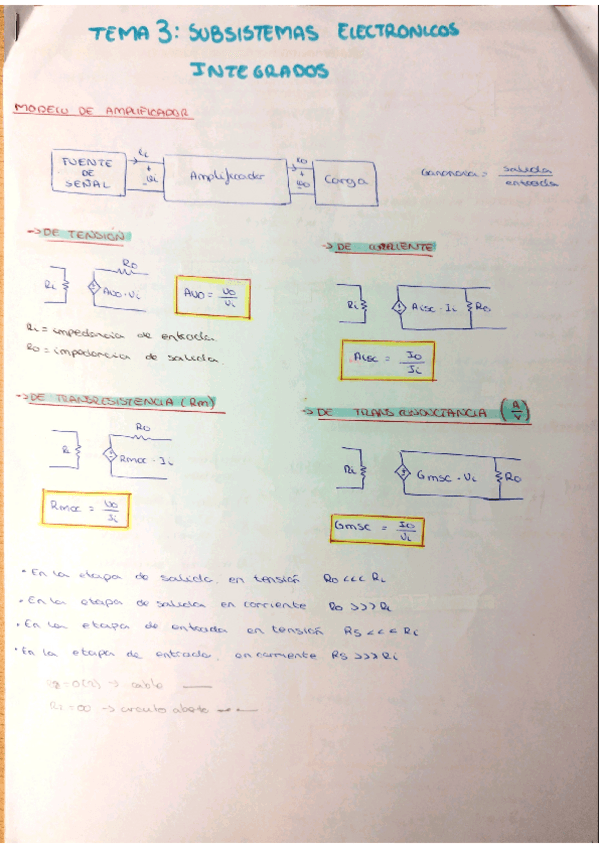 TEMA 3: SUBSISTEMAS ELECTRONICOS
INTEGRADOS
MODELO DE AMPLIFICADOR
FUENTE
DE
SEÑAL
ii
+
vi
-
Amplificador
io
+
vo
-
Carga
Ganancia = salida / entrada
-> DE TENSIÓN
Ri
Avo · Vi
Ro
Avo = Vo / Vi
Ri = impedancia de entrada
Ro = impedancia de salida
-> DE CORRIENTE
Ri
Aisc · Ii
Ro
Aisc = Io / Ii
-> DE TRANSRESISTENCIA (Rm)
Ri
Rmoc · Ii
Ro
Rmoc = Vo / Ii
-> DE TRANSCONDUCTANCIA (A/V)
Ri
Gmsc · Vi
Ro
Gmsc = Io / Vi
· En la etapa de salida, en tensión Ro <<< RL
· En la etapa de salida en corriente Ro >>> RL
· En la etapa de entrada en tensión Rs <<< Ri
· En la etapa de entrada, en corriente Rs >>> Ri
-> cable
= ∞ -> circuito abierto